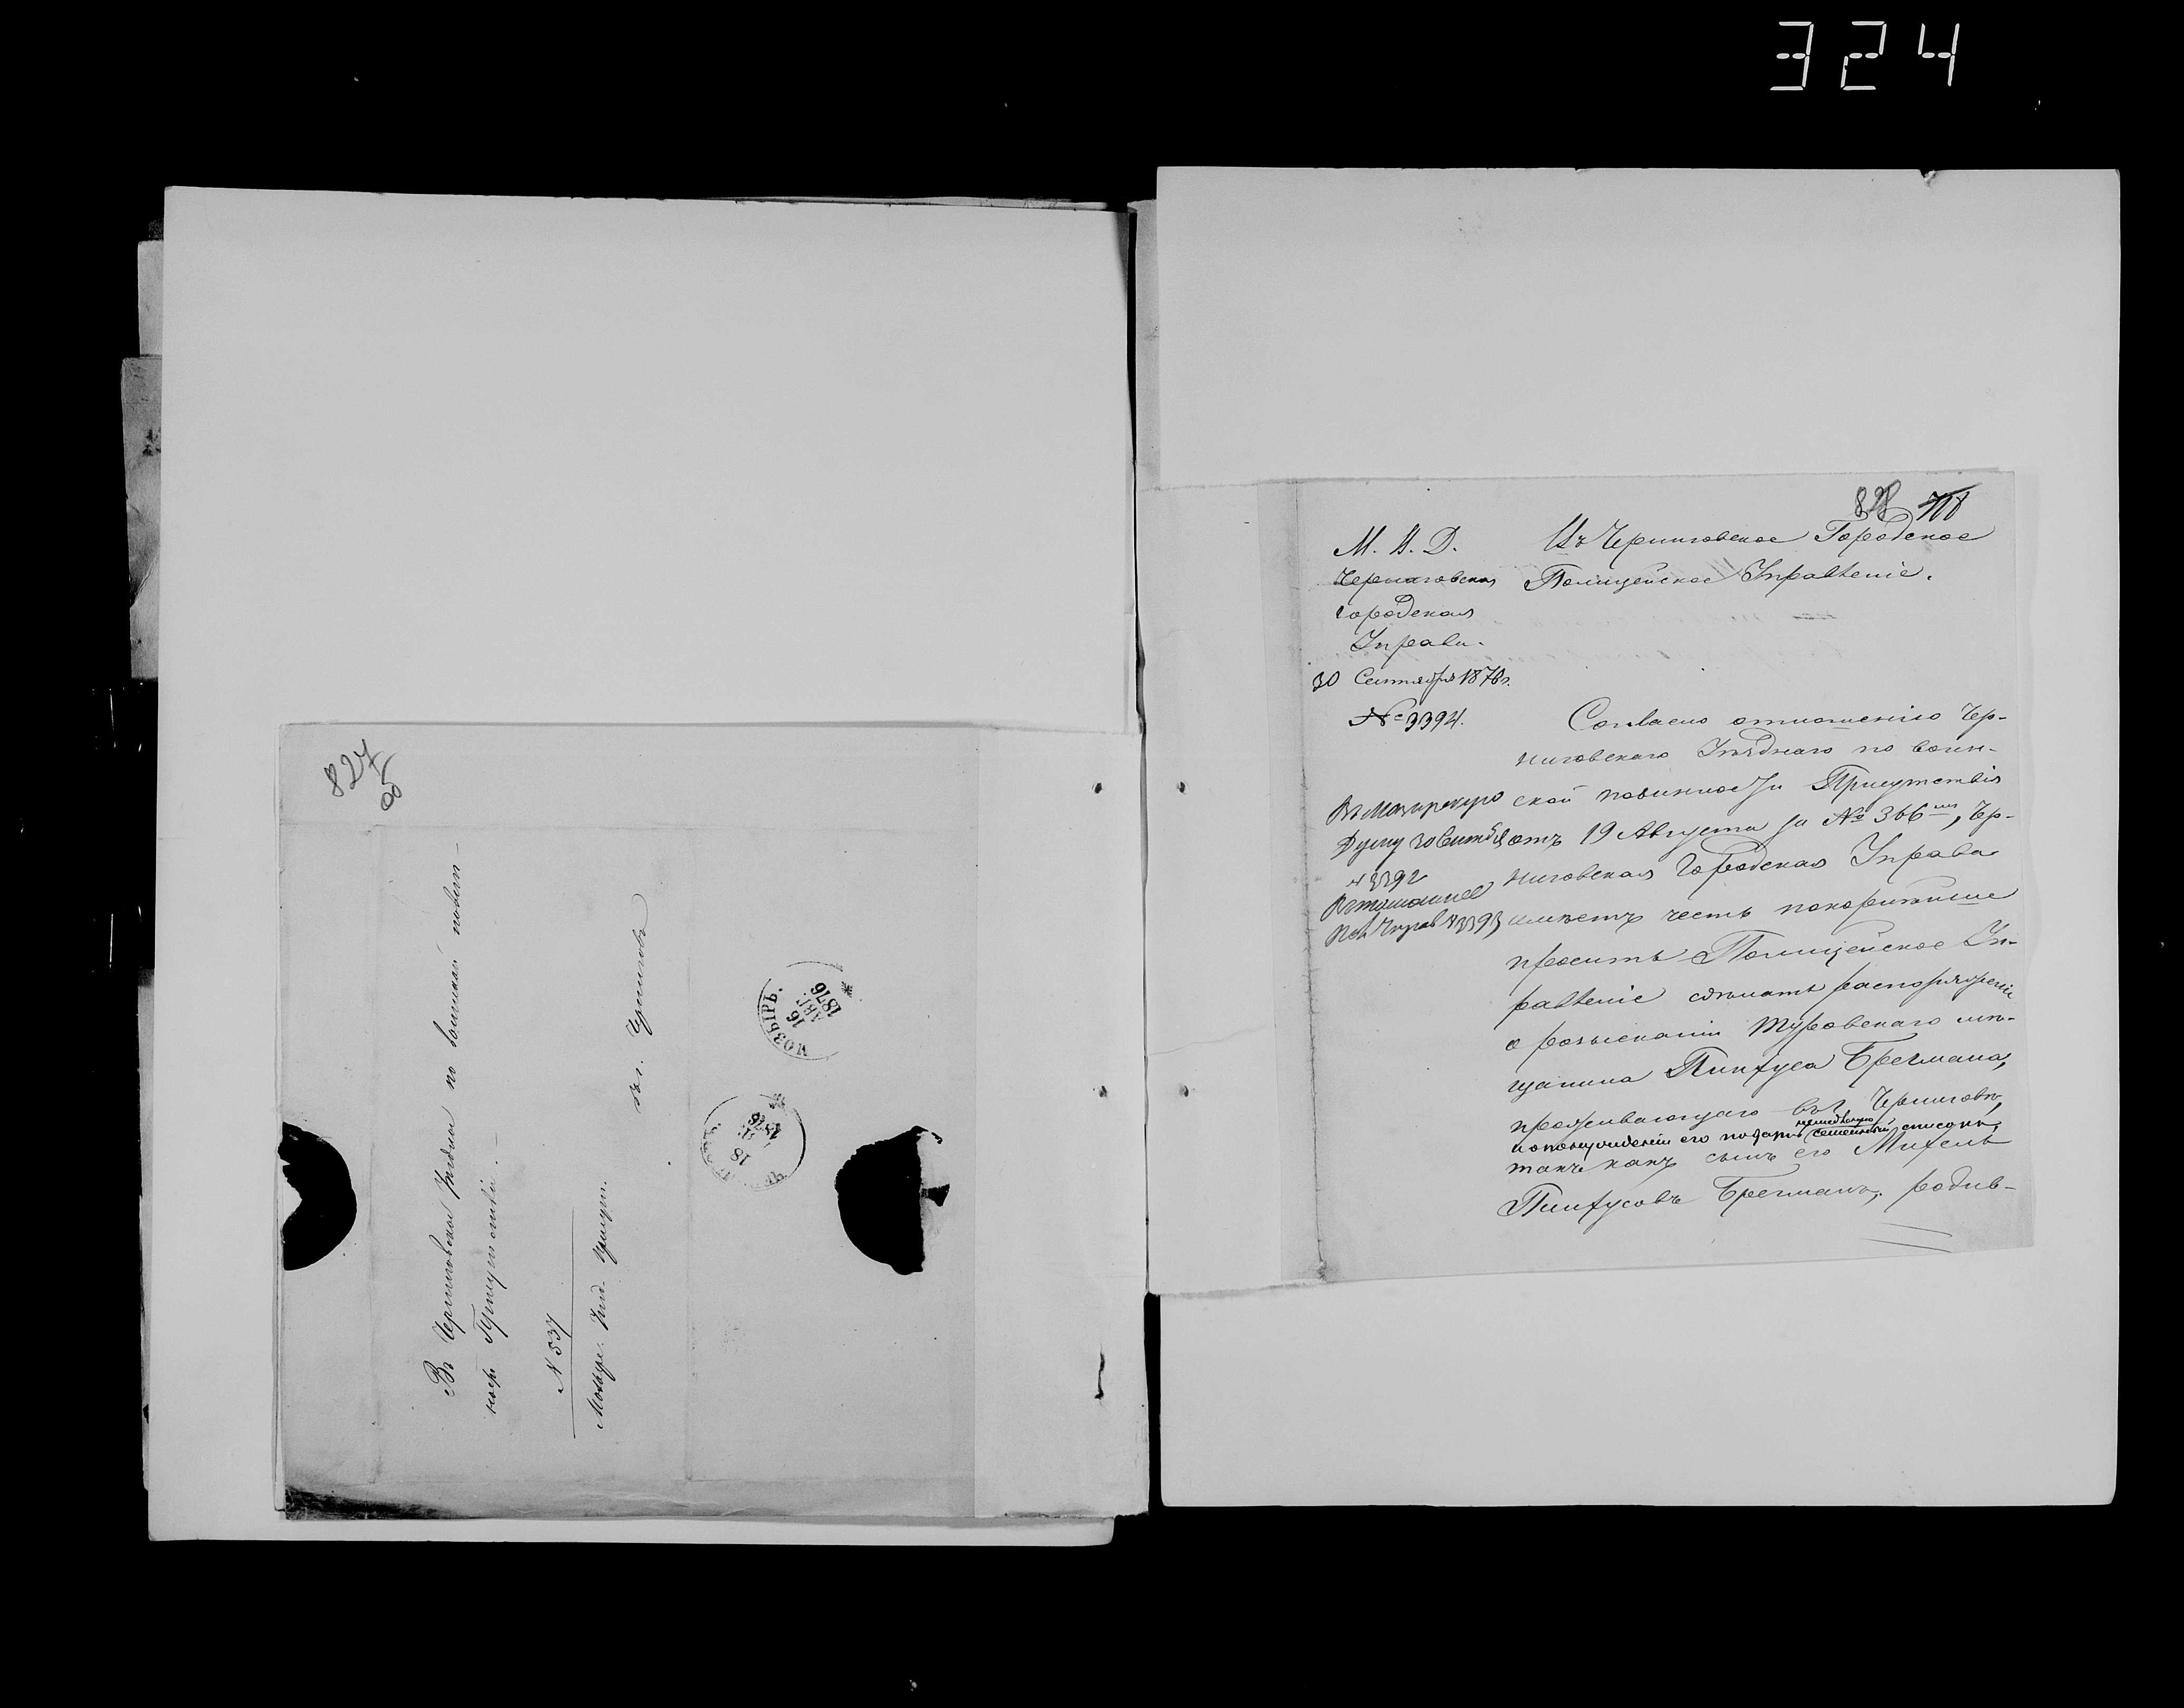 324
827
об
Въ Черниговское Уѣздное по воинской повин-
ности Присутствіе.
N 537
Мозыр. Уѣзд. Присут.
въ г. Черниговъ
МОЗЫРЬ.
16
АВГ.
1876
18
1876
828 718
М. В. Д.
Черниговская
Городская
Управа.
30 Сентября 1876 г.
№ 3394.
Въ Мозырскую
Думу
№ 3392
№ 3393
Въ Черниговское Городское
Полицейское Управленіе.
Согласно отношенію Чер-
ниговскаго Уѣзднаго по воин-
ской повинности Присутствія
отъ 19 Августа за № 366, Чер-
ниговская Городская Управа
имѣетъ честь покорнѣйше
просить Полицейское Уп-
равленіе сдѣлать распоряженіе
о розысканіи Туровскаго мѣ-
щанина Пинхуса Брегмана,
проживающаго въ г. Черниговѣ,
его семейный списокъ,
такъ какъ сынъ его Михель
Пинхусовъ Брегманъ, родив-